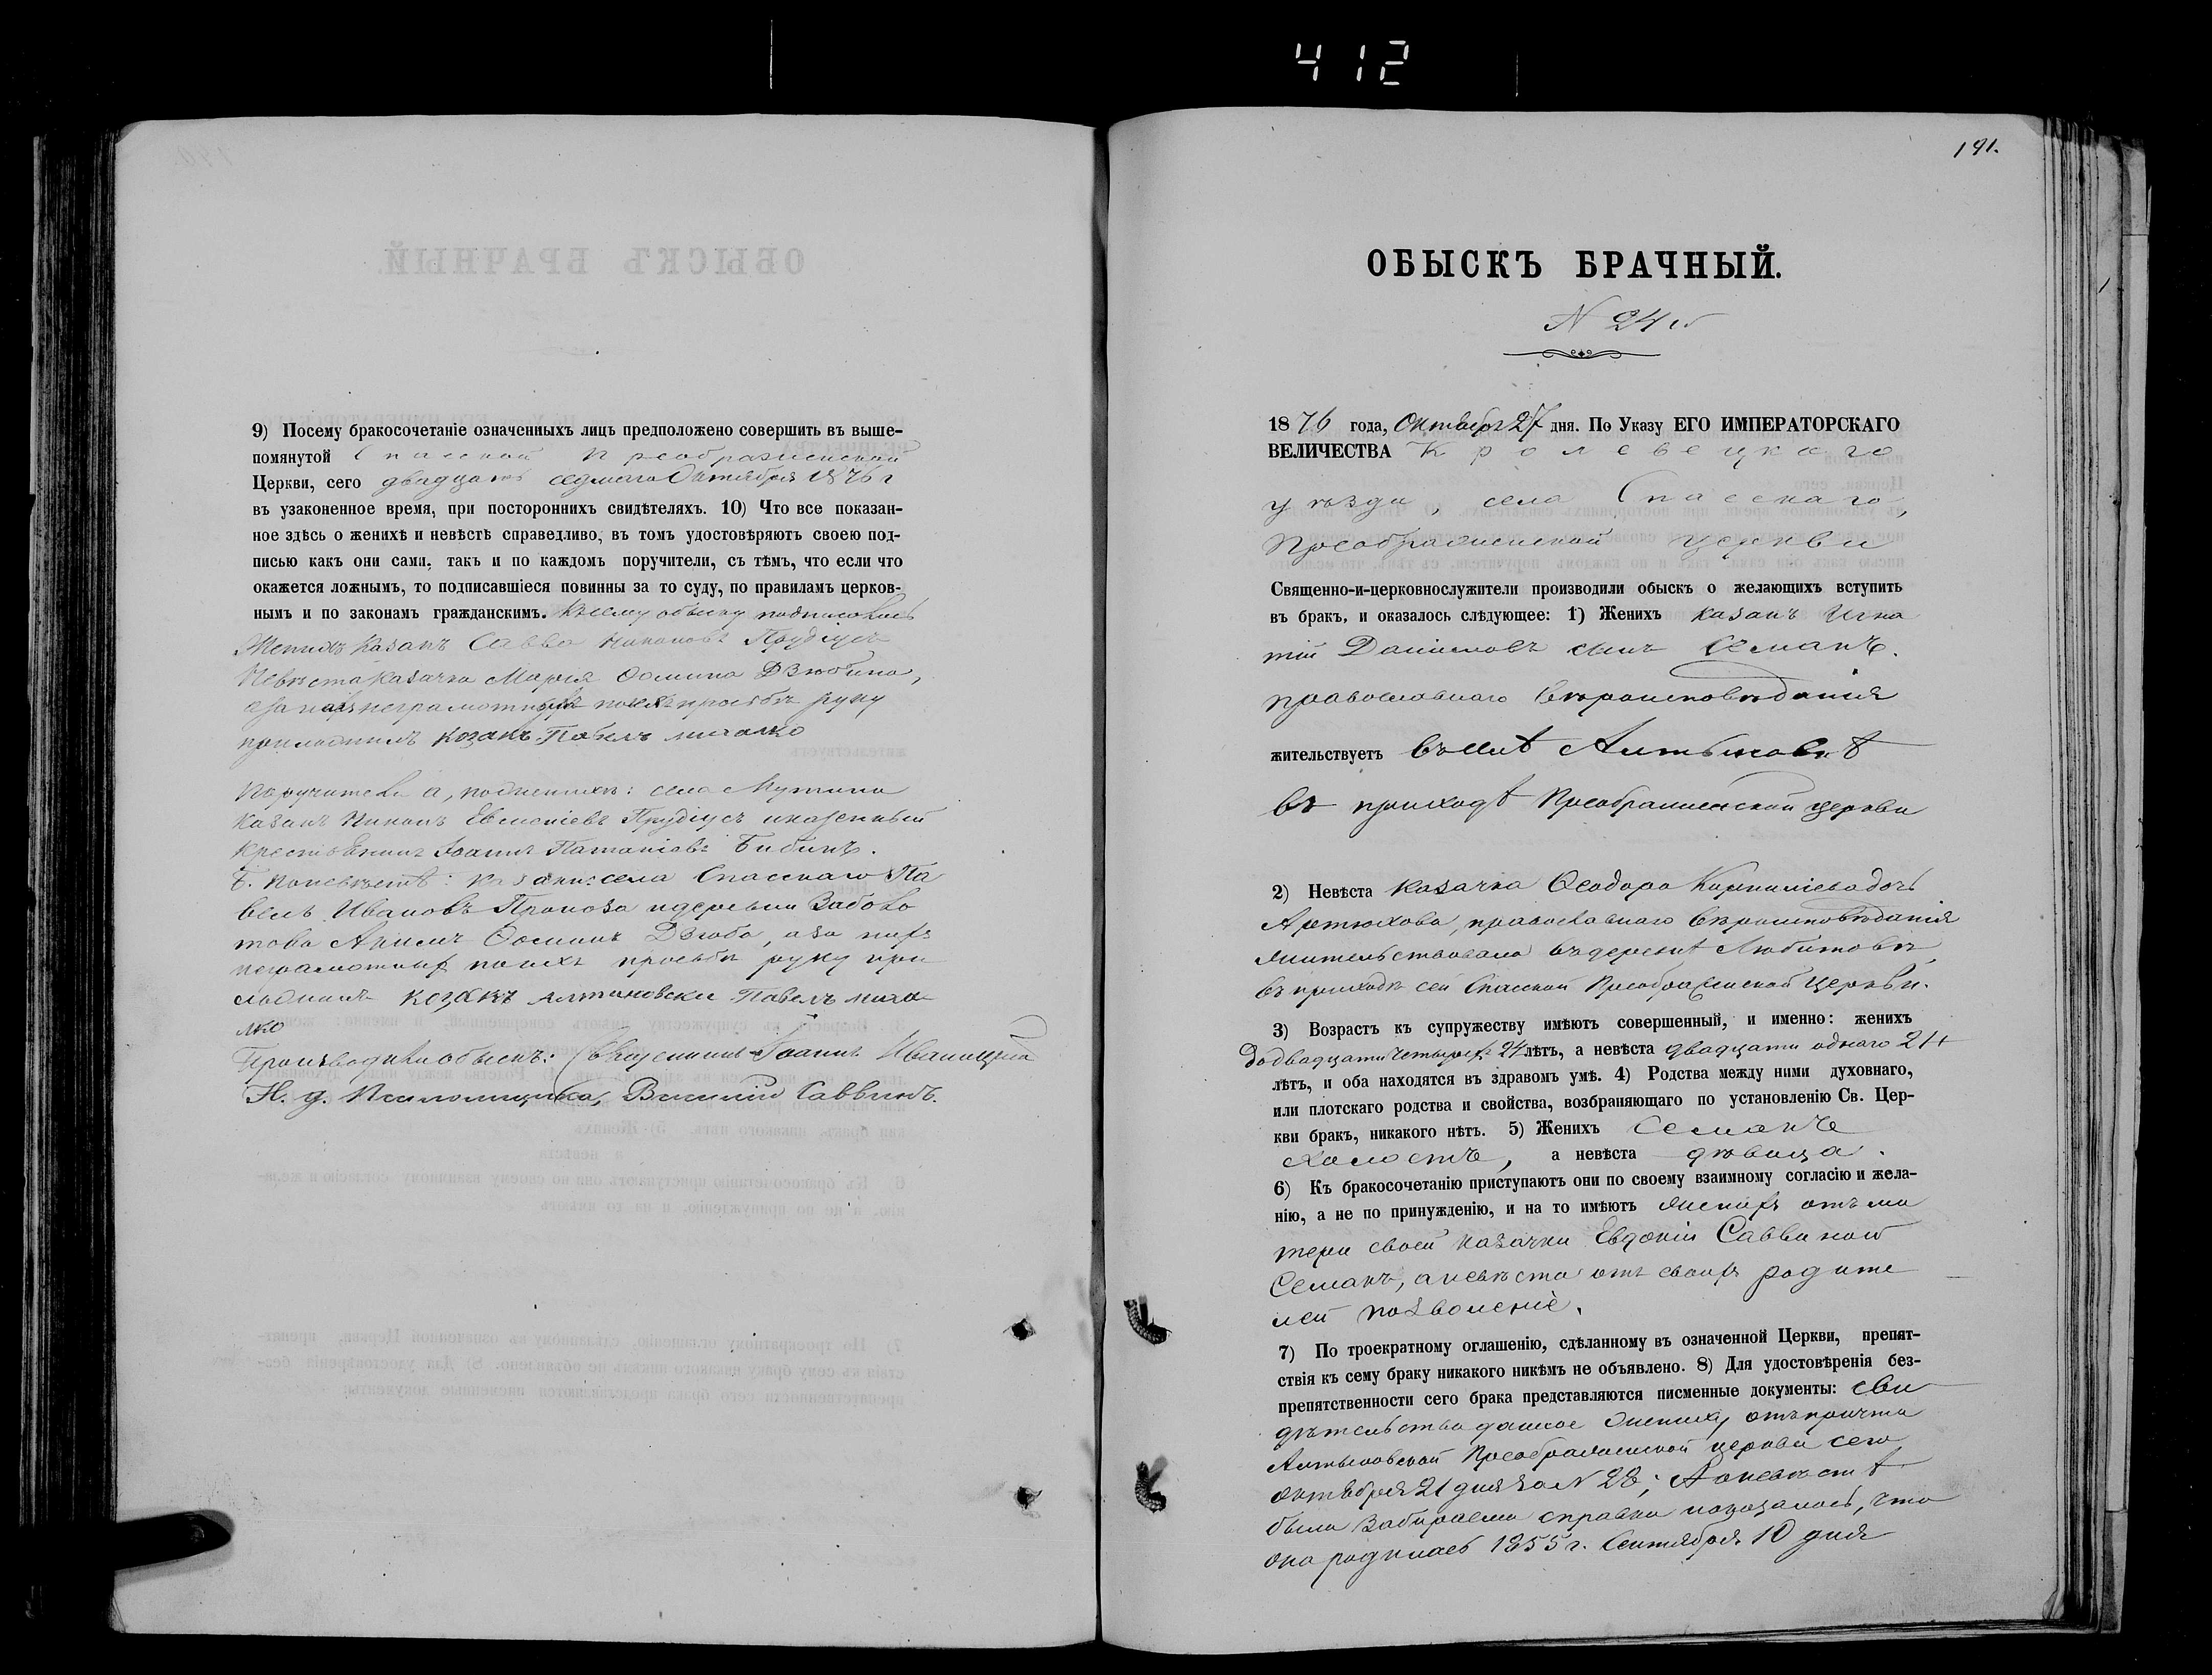 412
9) Посему бракосочетаніе означенныхъ лицъ предположено совершить въ выше-
помянутой Спасской Преображенской
Церкви, сего двадцать седмаго Октября 1876 г
въ узаконенное время, при постороннихъ свидѣтеляхъ. 10) Что все показан-
ное здѣсь о женихѣ и невѣстѣ справедливо, въ томъ удостовѣряютъ своею под-
писью какъ они сами, такъ и по каждомъ поручители, съ тѣмъ, что если что
окажется ложнымъ, то подписавшіеся повинны за то суду, по правиламъ церков-
нымъ и по законамъ гражданскимъ. Къ сему обыску подписались
Женихъ казакъ Савва Никоновъ Прудіусъ
Невѣста казачка Марія Ѳомина Дзюбина,
а за ихъ неграмотныхъ по ихъ просьбѣ руку
приложилъ козакъ Павелъ
Поручители а, по женихѣ: села Мутина
казакъ Никонъ Прудіусъ и казенный
крестьянинъ Іоаннъ Бибикъ.
б. по невѣстѣ: казаки: села Спасскаго Па
велъ Ивановъ и деревни
Ѳоминъ Дзюба, а за ихъ
неграмотных по ихъ просьбѣ руку при
ложилъ козакъ Павелъ
Производили обыскъ: Священникъ Іоаннъ Иваницкій
И. д. Псаломщика, Василій Саввинъ.
191.
ОБЫСКЪ БРАЧНЫЙ.
N 24й
1876 года, Октября 27 дня. По Указу ЕГО ИМПЕРАТОРСКАГО
ВЕЛИЧЕСТВА Кролевецкаго
уѣзда, села Спасскаго,
Преображенской церкви
Священно-и-церковнослужители производили обыскъ о желающихъ вступить
въ бракъ, и оказалось слѣдующее: 1) Женихъ казакъ Игна
тій Даниловъ сынъ Семакъ.
православнаго вѣроисповѣданія
жительствуетъ въ селѣ Алтыновкѣ
въ приходѣ Преображенской церкви
2) Невѣста казачка Ѳеодора Корниліева дочь
Артюхова, православнаго вѣроисповѣданія
жительствовала въ деревнѣ Любитовѣ,
въ приходѣ сей Спасской Преображенской Церкви.
3) Возрастъ къ супружеству имѣютъ совершенный, и именно: женихъ
до двадцати четырехъ 24 лѣтъ, а невѣста двадцати одного 21
лѣтъ, и оба находятся въ здравомъ умѣ. 4) Родства между ними духовнаго,
или плотскаго родства и свойства, возбраняющаго по установленію Св. Цер-
кви бракъ, никакого нѣтъ. 5) Женихъ Семакъ
холостъ, а невѣста дѣвица.
6) Къ бракосочетанію приступаютъ они по своему взаимному согласію и жела-
нію, а не по принужденію, и на то имѣютъ женихъ отъ ма
тери своей казачки Евдокіи Саввиной
Семакъ, а невѣста отъ своихъ родите
лей позволеніе.
7) По троекратному оглашенію, сдѣланному въ означенной Церкви, препят-
ствія къ сему браку никакого никѣмъ не объявлено. 8) Для удостовѣренія без-
препятственности сего брака представляются писменные документы: сви
дѣтельство данное жениху отъ причта
Алтыновской Преображенской церкви сего
октября 21 дня за N 28; А о невѣстѣ
была забираема справка показалось, что
она родилась 1855 г. Сентября 10 дня